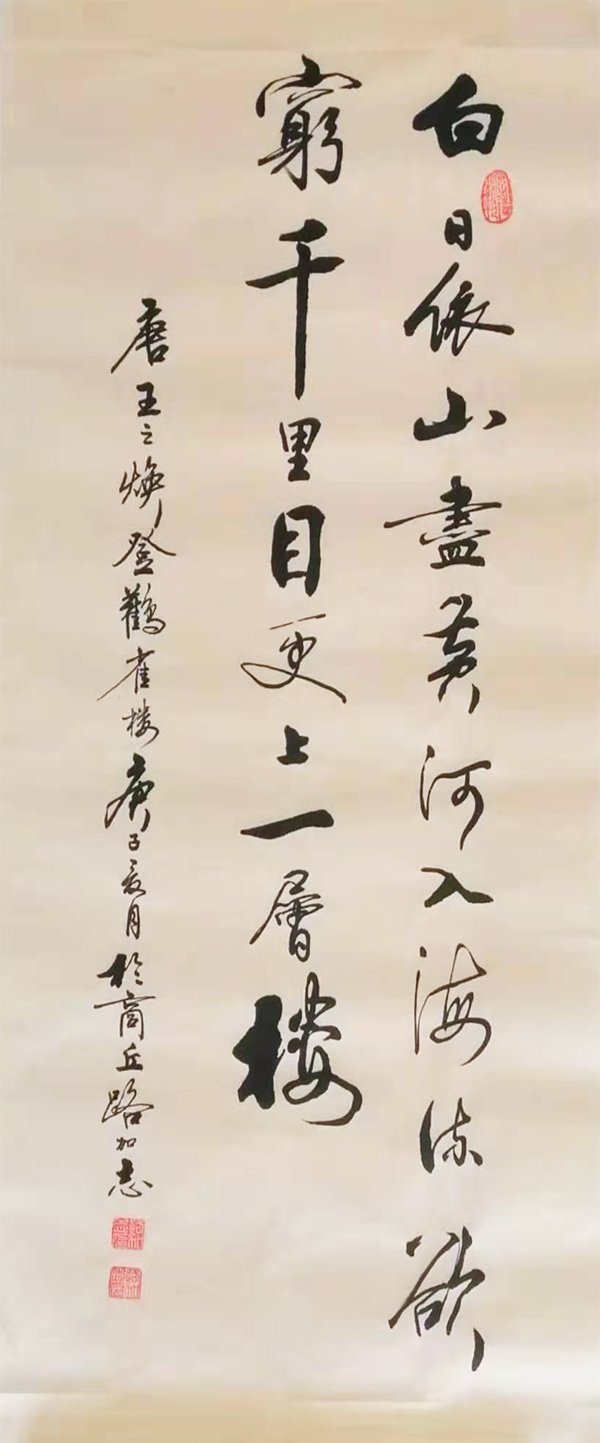 白日依山盡黄河入海流欲
窮千里目更上一層楼
唐王之焕登鸛雀楼庚子夏月於商丘路加志